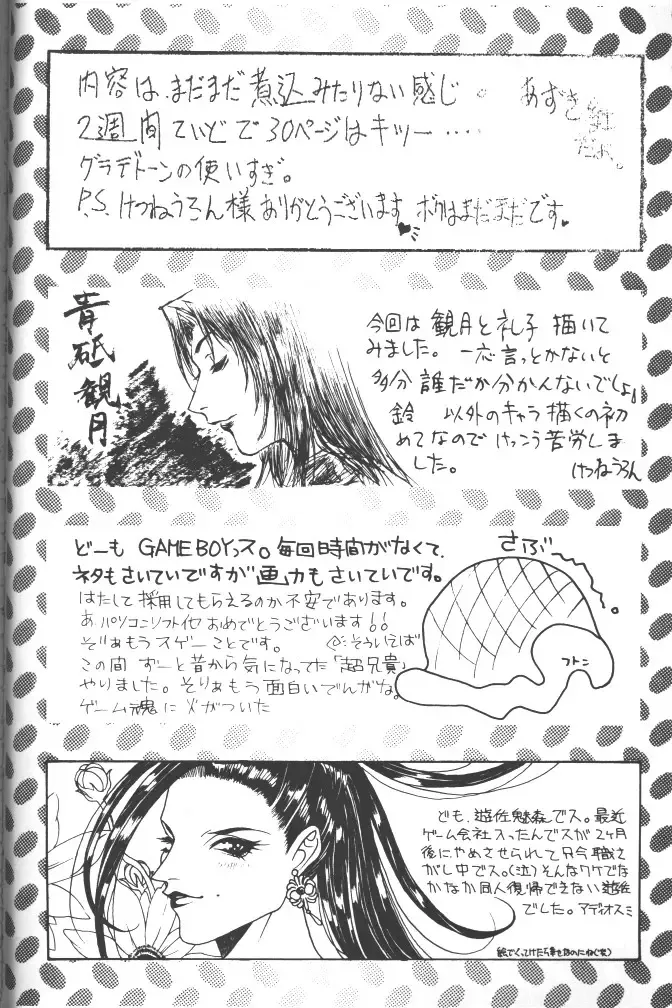 内容は、まだまだ煮込みたりない感じ。
2週間ていどで30ページはキツー・・・・
グラデトーンの使いすぎ。
P.S. けつねうろん様ありがとうございます ボクはまだまだです。
あずき
だよ。
青砥観月
今回は観月と礼子描いて
みました。一応言っとかないと
多分誰だか分かんないでしょ。
鈴 以外のキャラ描くの初
めてなのでけっこう苦労しま
した。
けつねうろん
どーも GAMEBOYっス。毎回時間がなくて、
ネタもさいていですが画力もさいていです。
はたして採用してもらえるのか不安であります。
あ、パソコンソフトイヤおめでとうございます!!
そりぁもうスゲーことです。
そういえば
この間 ずーと昔から気になってた「超兄貴」
やりました。そりぁもう面白いでんがな。
ゲーム魂に火がついた
さぶ〜
フトン
ども、遊佐魅森でス。最近
ゲーム会社入ったんでスが2ヶ月
後にやめさせられて只今職さ
がし中でス。(泣)そんなワケでな
かなか同人復帰できない遊佐
でした。アディオス